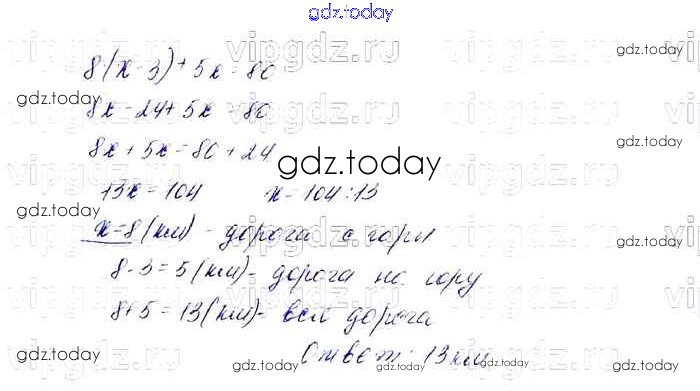 gdz.today
8·(x-3)+5x=80
vipgdz.ru
gdz.today
gdz.today
8x-24+5x=80
8x+5x=80+24
gdz.today
13x=104 x=104:13
x=8(км) - дорога с горы
gdz.today
gdz.today
8-3=5(км)- дорога на гору
8+5=13(км)- вся дорога
Ответ: 13 км
gdz.today
gdz.today
gdz.today